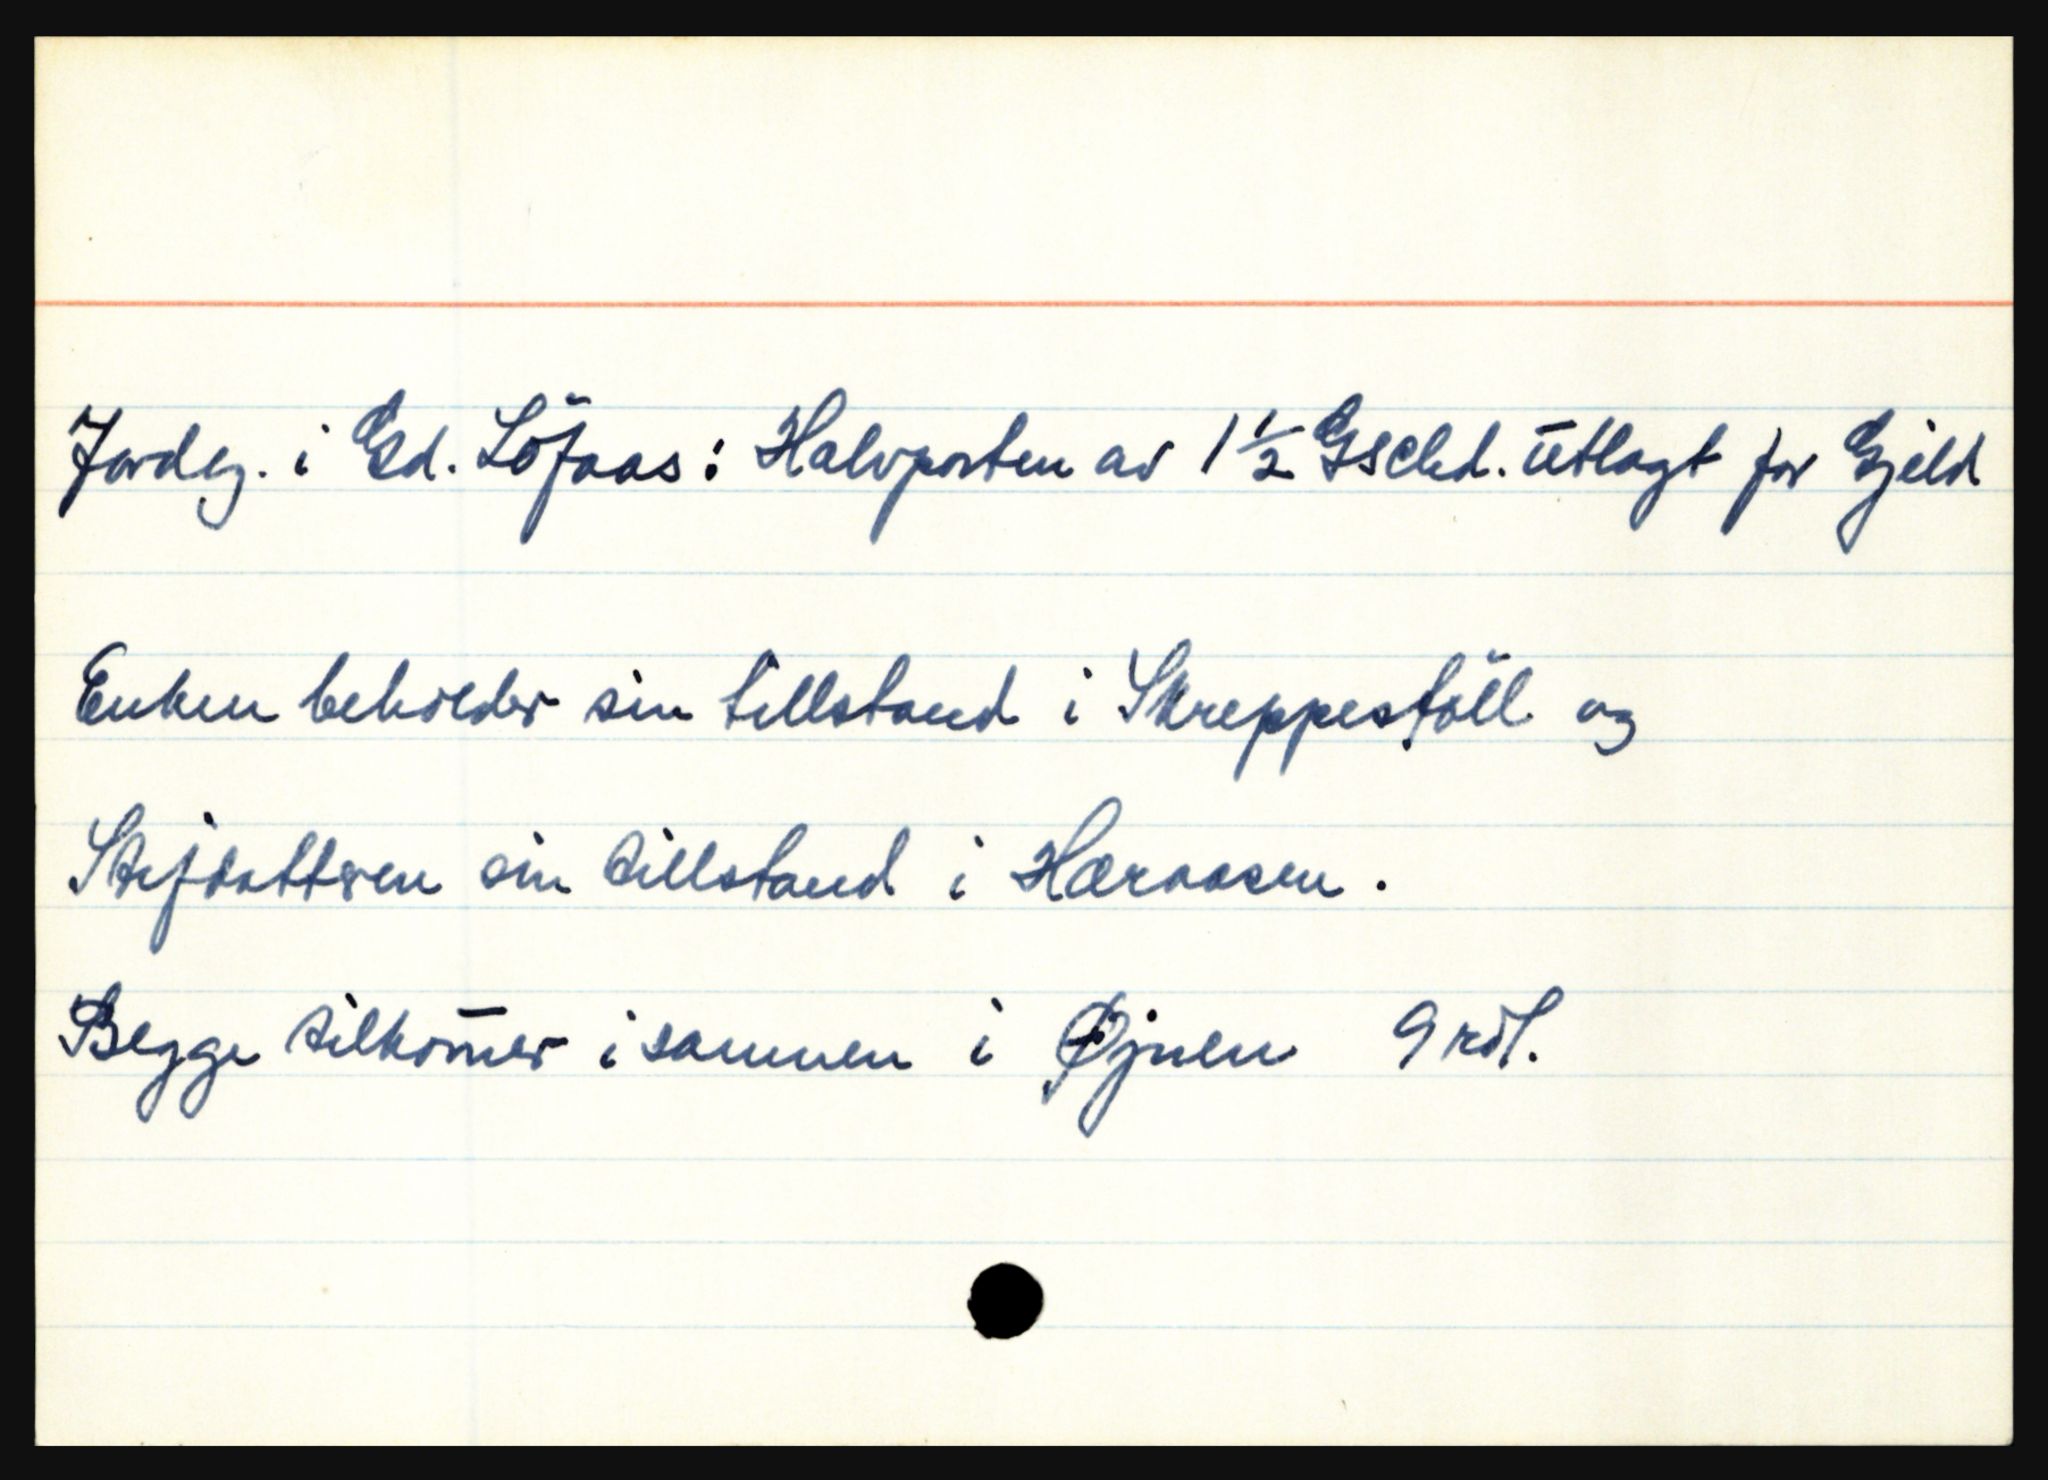 Jordeg. i Gd. Löfaas: Halvparten av 1½ Gschd. utlagt for Gjeld
Enken beholder sin tillstand i Skreppestöll og
Stifdatteren sin tillstand i Hæraasen.
Begge tilkom̅er isammen i Øjnen 9 rdl.